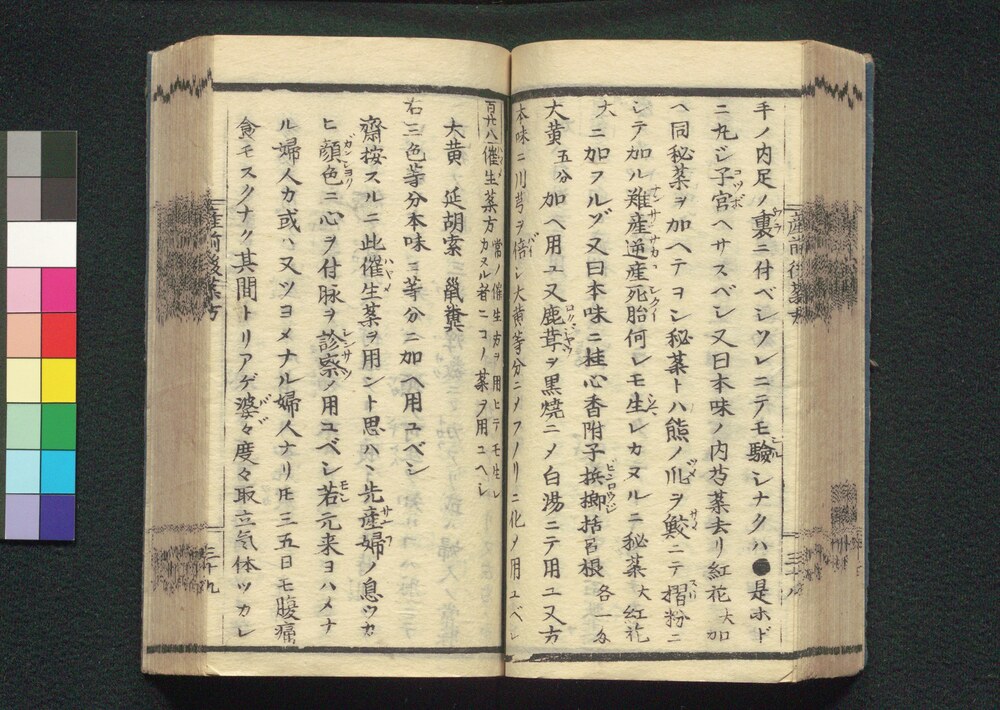 手ノ内足ノ裏ニ付ベシソレニテモ驗シナクハ●是ホド
ニ丸ジ子宮ヘサスベシ又曰本味ノ内芍薬去リ紅花大加
ヘ同秘薬ヲ加ヘテヨシ秘薬ト ハ熊ノ爪ヲ鮫ニテ摺粉ニ
シテ加ル難産逆産死胎何レモ生レカヌルニ秘薬大紅花
大ニ加フルゾ又曰本味ニ桂心香附子梹榔括呂根各一匁
大黄五分加ヘ用ユ又鹿茸ヲ黒焼ニメ白湯ニテ用ユ又方
本味ニ川芎ヲ倍シ大黄等分ニメフノリニ化メ用ユベシ
百廿八催生薬方常ノ催生方ヲ用ヒテモ生レカヌル者ニコノ薬ヲ用ユヘシ
大黄 延胡索 鼠糞
右三色等分本味ニ等分ニ加ヘ用ユベシ
齋按スルニ此催生薬ヲ用ント思ハヽ先産婦ノ息ツカ
ヒ顔色ニ心ヲ付脉ヲ診察メ用ユベシ若元来ヨハメナ
ル婦人カ或ハ又ツヨメナル婦人ナリ圧三五日モ腹痛
食モスクナク其間トリアゲ婆々度々取立気体ツカレ
産前後薬方
三十九